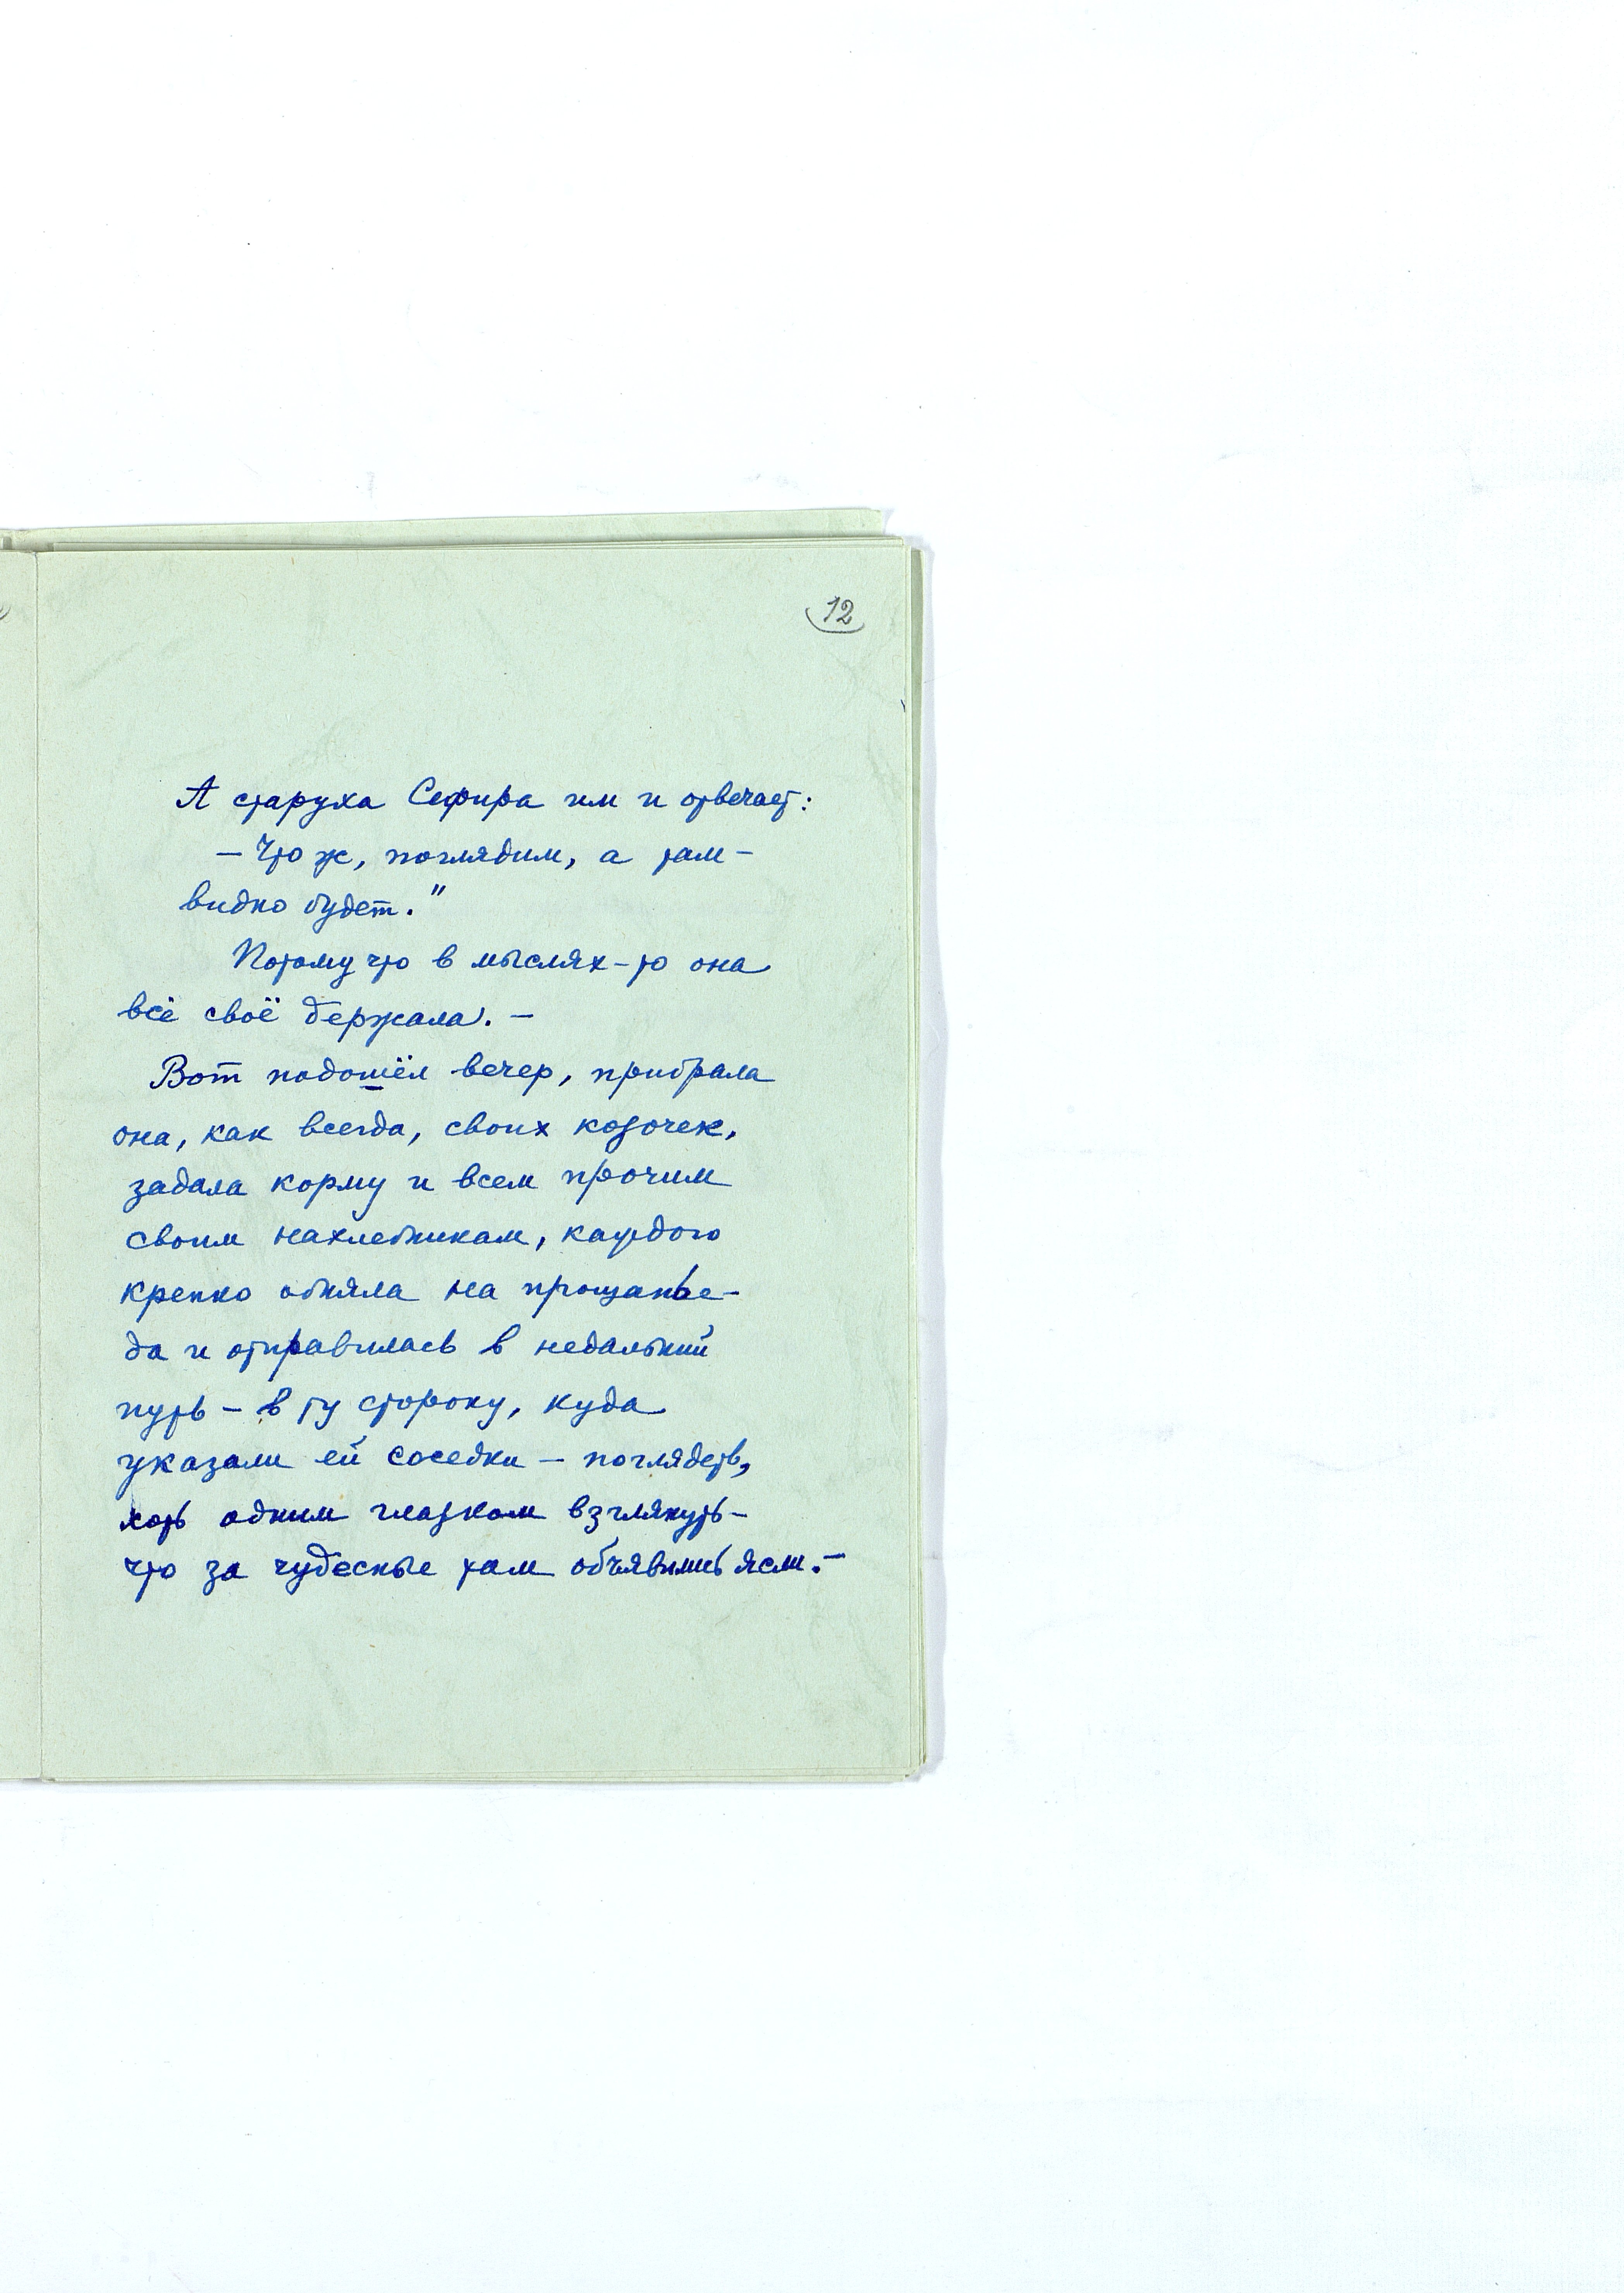 12
А старуха Сефира им и отвечает:
— Что ж, поглядим, а там —
видно будет."
Потому что в мыслях-то она
всё своё держала. —
Вот подошёл вечер, прибрала
она, как всегда, своих козочек,
задала корму и всем прочим
своим нахлебникам, каждого
крепко обняла на прощанье —
да и отправилась в недальний
путь — в ту сторону, куда
указали ей соседки — поглядеть,
хоть одним глазком взглянуть —
что за чудесные там объявились ясли. —